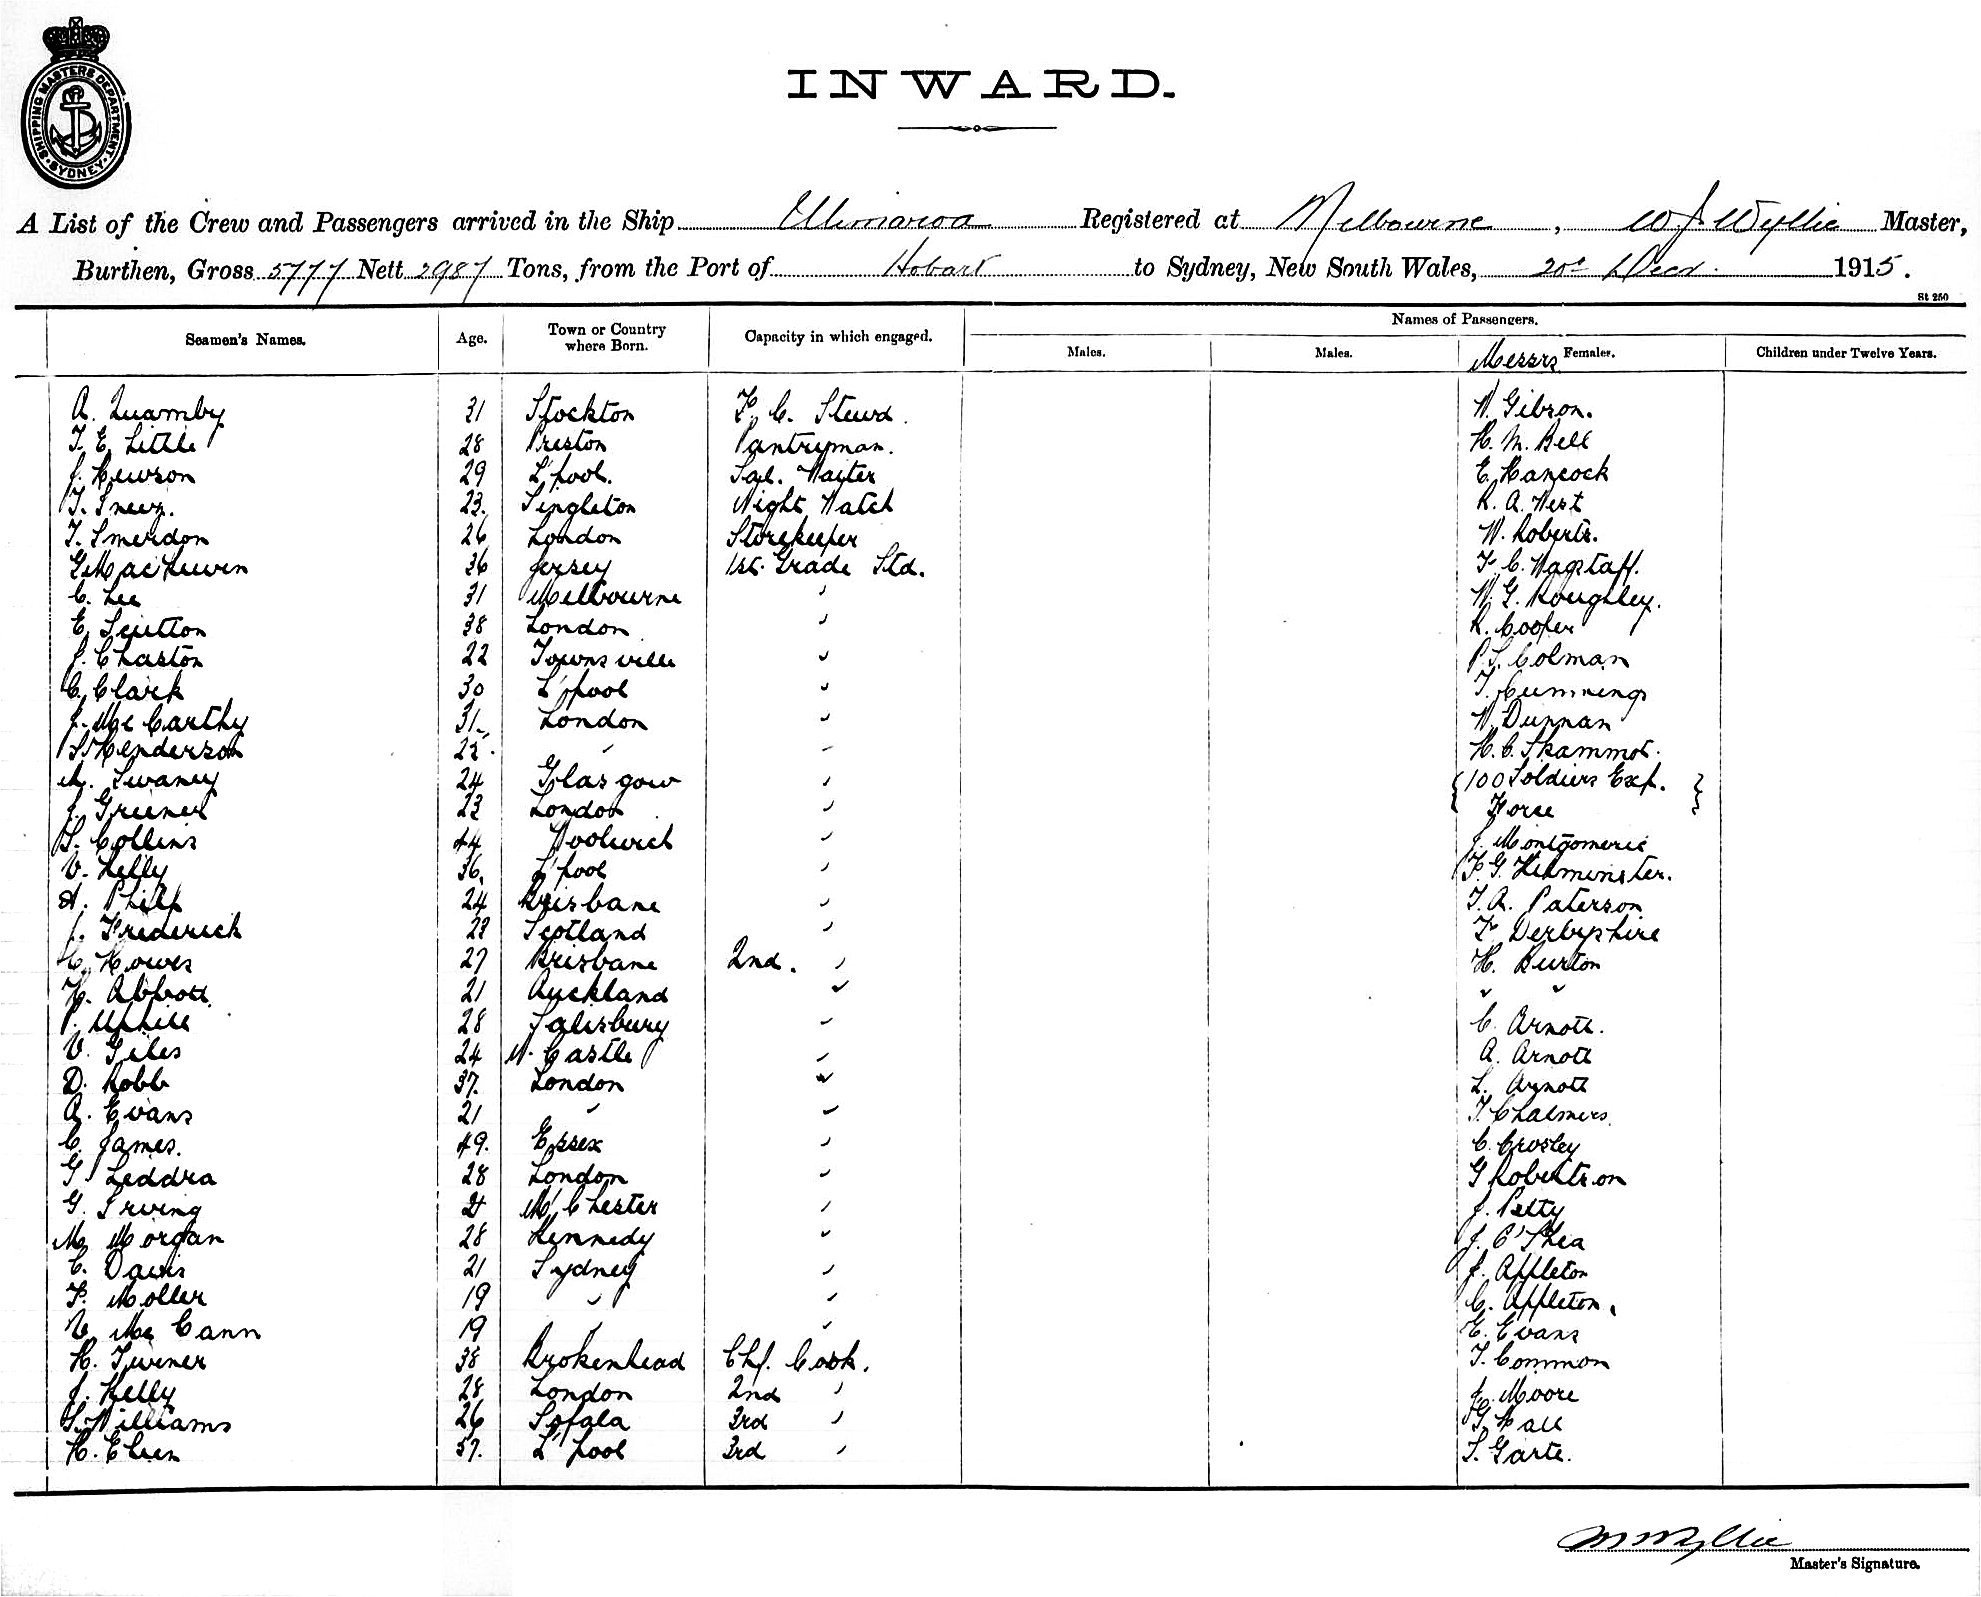 SHIPPING MASTERS DEPARTMENT · SYDNEY ·
INWARD.
A List of the Crew and Passengers arrived in the Ship Ulimaroa Registered at Melbourne, W J Wyllie Master,
Burthen, Gross 5777 Nett 2987 Tons, from the Port of Hobart to Sydney, New South Wales, 20th Decr. 1915.
St 250
Seamen's Names. Age. Town or Country where Born. Capacity in which engaged. Names of Passengers.
Males. Males. Messrs Females. Children under Twelve Years.
A. Quamby 31 Stockton F. C. Stewd. W. Gibson.
T. E. Little 28 Preston Pantryman. H. M. Bell
J. Hewson 29 L'pool. Sgl. Waiter E. Hancock
T. 23. Singleton Night Watch R. A. West
T. Smerdon 26 London Storekeeper W. Roberts.
G. 36 Jersey 1st. Grade Std. F. C. Wagstaff.
C. Lee 31 Melbourne " W. G. Roughley.
E. Sutton 38 London " R. Cooper
J. Chaston 22 Townsville " P. S. Colman
C. Clark 30 L'pool " T. Cummings
J. Mc Carthy 31. London " W. Dunnan
S. Henderson 22. " " H. C.
M. Swaney 24 Glasgow " { 100 Soldiers Exp. }
J. 23 London " Force
S. Collins 44 Woolwich " J. Montgomerie
V. Kelly 36. L'pool " F. G.
A. Philp 24 Brisbane " T. A. Paterson
J. Frederick 23 Scotland " F. Derbyshire
C. Howes 27 Brisbane 2nd. " H. Burton
H. Abbott. 21 Auckland " " "
P. Uphill 28 Salisbury " C. Arnott.
V. Giles 24 N. Castle " A. Arnott
D. Robb 37. London " L. Arnott
A. Evans 21 " " T. Chalmers.
C. James. 49. Essex " C. Crosley
G. Leddra 28 London " G Robertson
G. Irving 21 M'Chester " J. Petty
M. Morgan 28 Kennedy " J. O'Shea
C. Davis 21 Sydney " J. Appleton
F. Moller 19 " " C. Appleton.
V. Mc Cann 19 " " E. Evans
H. Turner 38 Brokenhead Chf. Cook. T. Common
J. Kelly 28 London 2nd " J. Moore
S. Williams 26 Sofala 3rd " G. Hall
H. 37. L'pool 3rd " S. Garte.
W J Wyllie
Master's Signature.